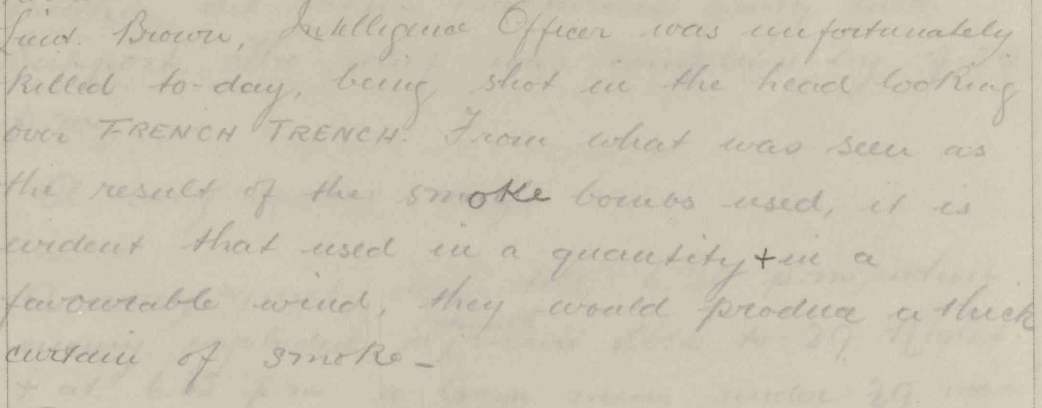 Lieut. Brown, Intelligence Officer was unfortunately
killed to-day, being shot in the head looking
over FRENCH TRENCH. From what was seen as
the result of the smoke bombs used, it is
evident that used in a quantity + in a
favourable wind, they would produce a thick
curtain of smoke -